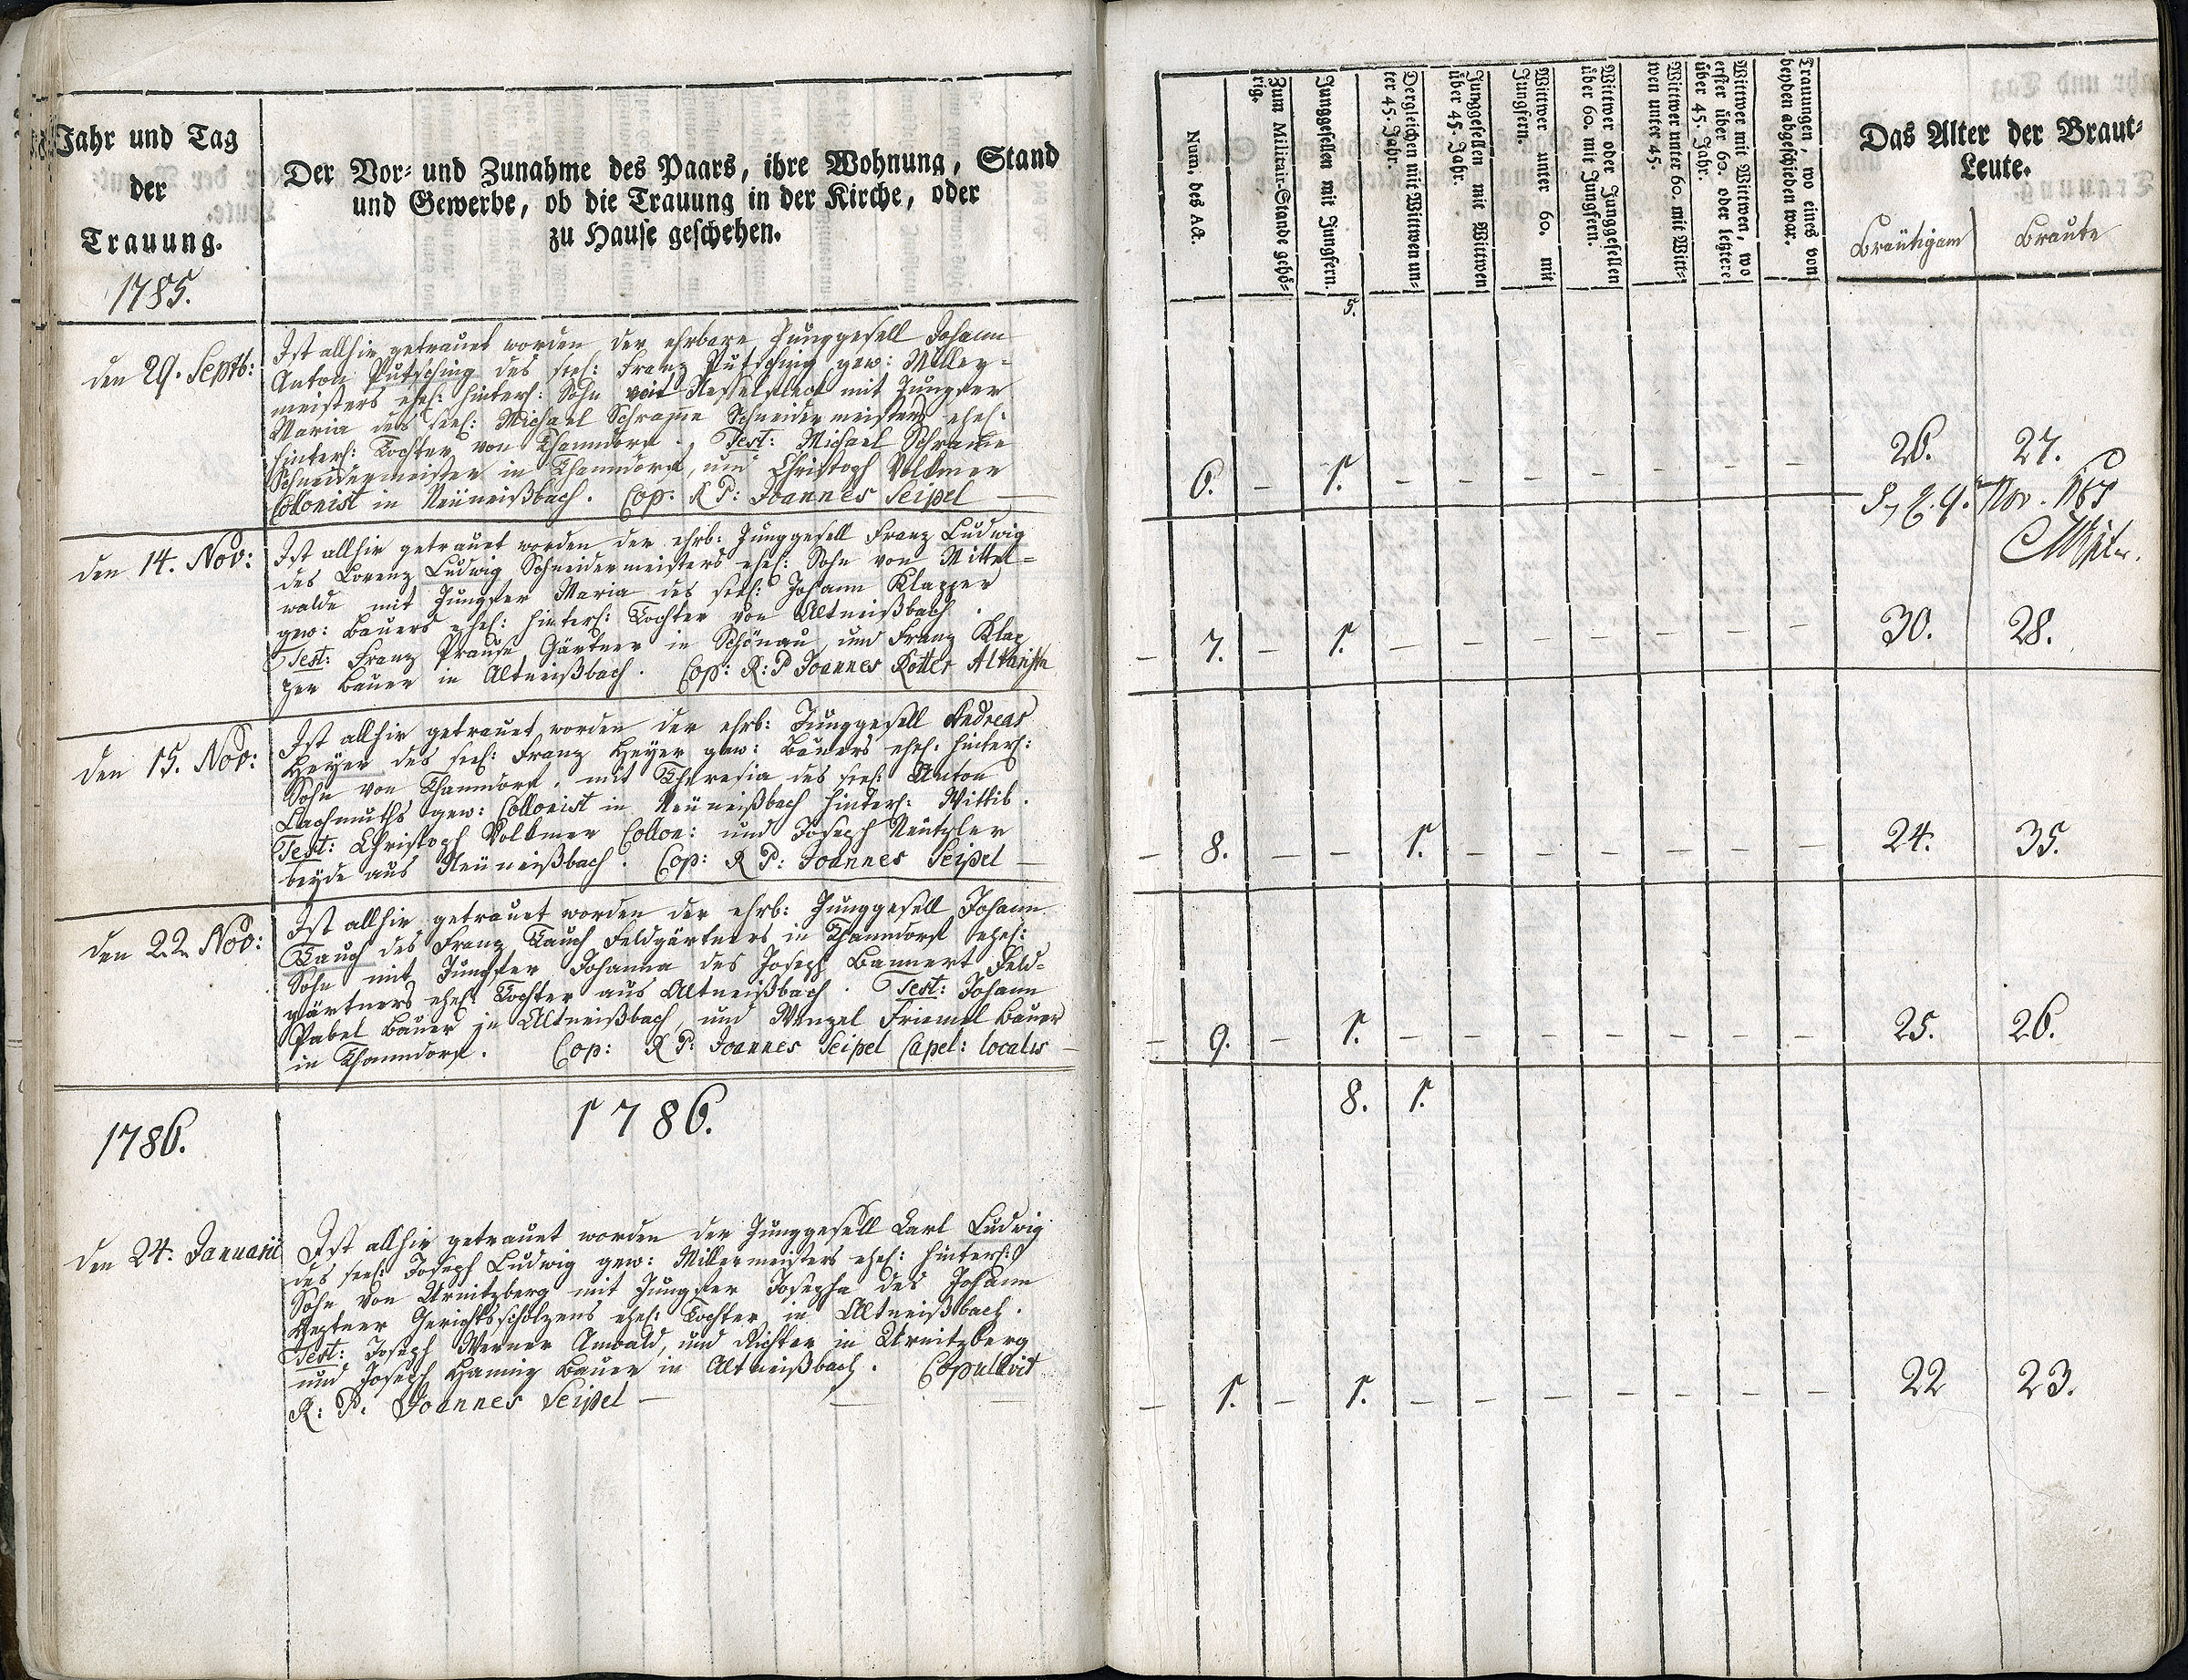 Jahr und Tag
der
Trauung.
1785.
Der Vor- und Zunahme des Paars, ihre Wohnung, Stand
und Gewerbe, ob die Trauung in der Kirche, oder
zu Hause geschehen.
den 29. Septb:
Ist allhir getrauet worden der ehrbare Junggesell Johann
Anton Putsching des seel: Franz Putsching gew: Müller-
meisters ehel: hinterl: Sohn mit Jungfer
Maria des seel: Michael Schrame Schneidermeisters ehel:
hinterl: Tochter von Thanndorf. Test: Michael Schrame
Schneidermeister in Thanndorf, und Christoph Volkmer
Collonist in Neüneißbach. Cop: R P: Joannes Seipel
den 14. Nov:
Ist allhir getrauet worden der ehrb: Junggesell Franz Ludwig
des Lorenz Ludwig Schneidermeisters ehel: Sohn von Mittel-
walde mit Jungfer Maria des seel: Johann Klapper
gew: Bauers ehel: hinterl: Tochter von Altneißbach.
Test: Franz Prause Gärtner in Schönau, und Franz Klap
per Bauer in Altneißbach. Cop: R: P Joannes Rotter Altarista
den 15. Nov:
Ist allhir getrauet worden der ehrb: Junggesell Andreas
Heyer des seel: Franz Heyer gew: Bauers ehel: hinterl:
Sohn von Thanndorf, mit Theresia des seel: Anton
Lachmuths gew: Collonist in Neüneißbach hinterl: Wittib.
Test: Christoph Volkmer Collon: und Joseph
beyde aus Neüneißbach. Cop: R P: Joannes Seipel
den 22. Nov:
Ist allhir getrauet worden der ehrb: Junggesell Johann
Tauch des Franz Tauch Feldgärtners in Thanndorf ehel:
Sohn mit Jungfer Johanna des Joseph Bannert Feld-
gärtners ehel: Tochter aus Altneißbach. Test: Johann
Pabel Bauer in Altneißbach, und Wenzel Friemel Bauer
in Thanndorf. Cop: R P: Joannes Seipel Capel: localis
1786.
1786.
den 24. Januarii
Ist allhir getrauet worden der Junggesell Carl Ludwig
des seel: Joseph Ludwig gew: Müllermeisters ehel: hinterl:
Sohn von Urnitzberg mit Jungfer Josepha des Johann
Gerichtsscholzens ehel: Tochter in Altneißbach.
Test: Joseph Werner Anwald, und Richter in Urnitzberg
und Joseph Hannig Bauer in Altneißbach. Copulavit
R: P: Joannes Seipel
Num. des Act.
Zum Militair-Stande gehö-
rig.
Junggesellen mit Jungfern.
Dergleichen mit Wittwen un-
ter 45. Jahr.
Junggesellen mit Wittwen
über 45. Jahr.
Wittwer unter 60. mit
Jungfern.
Wittwer oder Junggesellen
über 60. mit Jungfern.
Wittwer unter 60. mit Witt-
wen unter 45.
Wittwer mit Wittwen, wo
erster über 60. oder letztere
über 45. Jahr.
Trauungen, wo eines von
beyden abgeschieden war.
Das Alter der Braut-
Leute.
Bräutigam Braute
5.
6. – 1. – – – – – – – 26. 27.
– 7. – 1. – – – – – – – 30. 28.
– 8. – – 1. – – – – – – 24. 35.
– 9. – 1. – – – – – – – 25. 26.
8. 1.
– 1. – 1. – – – – – – – 22 23.